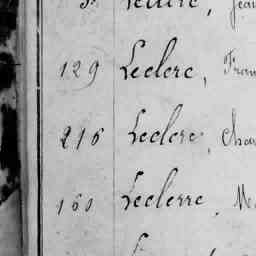 Leclerc, Jean
129 Leclerc, Fran
216 Leclerc, Char
160 Leclerre, Ma